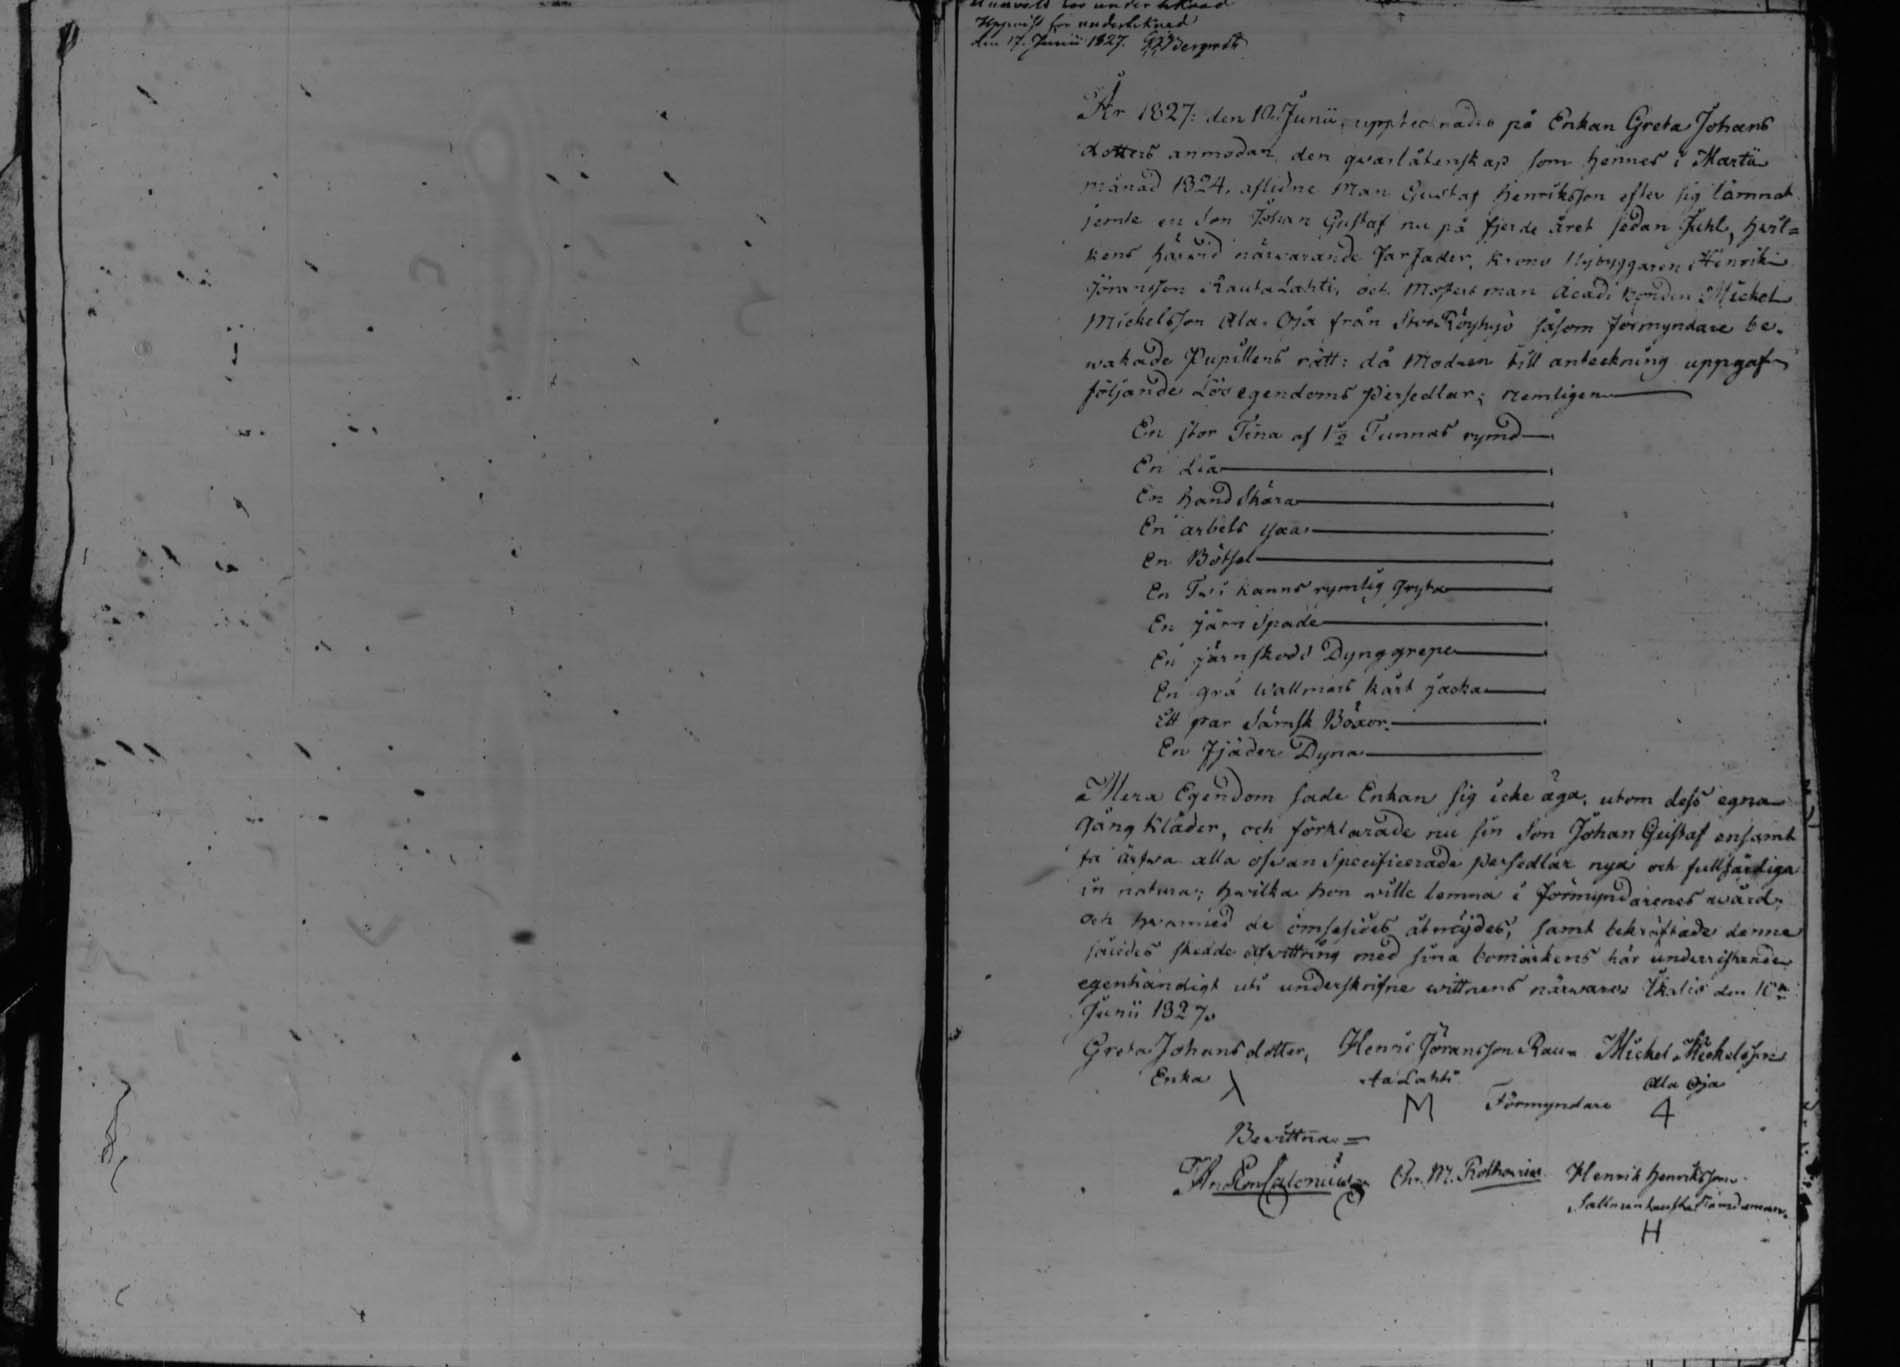 Uppvist för undertecknad
den 17. Junii 1827.
År 1827: den 10. Junii, upptecknades på Enkan Greta Johans
dotters anmodan, den qvarlåtenskap som hennes i Martii
månad 1824. aflidne Man Gustaf Henriksson efter sig lämnat
jemte en Son Johan Gustaf nu på fjerde året sedan Juhl, hvil=
kens härvid närvarande Farfader, Krono Nybyggaren Henrik
Jöransson Rautalahti, och Mosters man Acadi bonden Mickel
Mickelsson Ala-Oja från såsom förmyndare be-
wakade Pupillens rätt: då Modren till anteckning uppgaf
följande Lös egendoms Persedlar; nemligen
En stor Tina af 1½ Tunnas rymd
En Lia
En hand Skära
En arbets yxa
En Bötsel
En Tu i kanns rymlig Gryta
En järn Spade
En järnskodd Dynggrepe
En grå Wallmars kårt jacka
Ett par Sämsk Böxor
En Fjäder Dyna
Mera Egendom sade Enkan sig icke äga, utom dess egna
Gång Kläder, och förklarade nu sin Son Johan Gustaf ensamt
få ärfwa alla ofwan Specificerade persedlar nya och fullfärdiga
in natura; hwilka hon wille lemna i förmyndarenes wård;
och hwarmed de ömsesides åtnöjdes, samt bekräftade denne
således skedde afwittring med sina bomärkens här underristande
egenhändigt uti underskrifne wittnens närwaro. den 10n
Junii 1827.
Greta Johansdotter, Henric Jöransson Rau- Mickel Mickelsson
Enka ta Lahti Ala Oja
M Förmyndare 4
Bewittna =
Chr. M. Henrik Henriksson
H